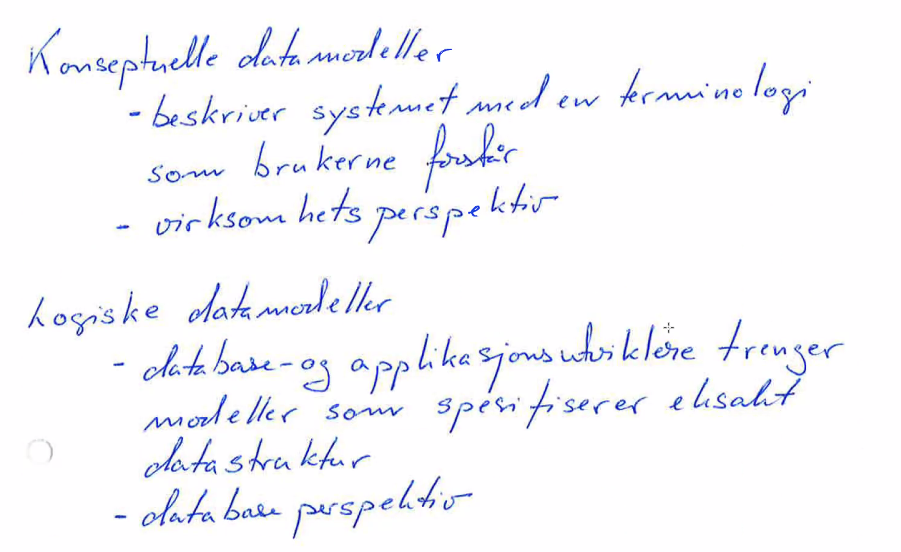 Konseptuelle datamodeller
- beskriver systemet med en terminologi
som brukerne forstår
- virksomhets perspektiv
Logiske datamodeller
- database- og applikasjonsutviklere trenger
modeller som spesifiserer eksakt
datastruktur
- database perspektiv